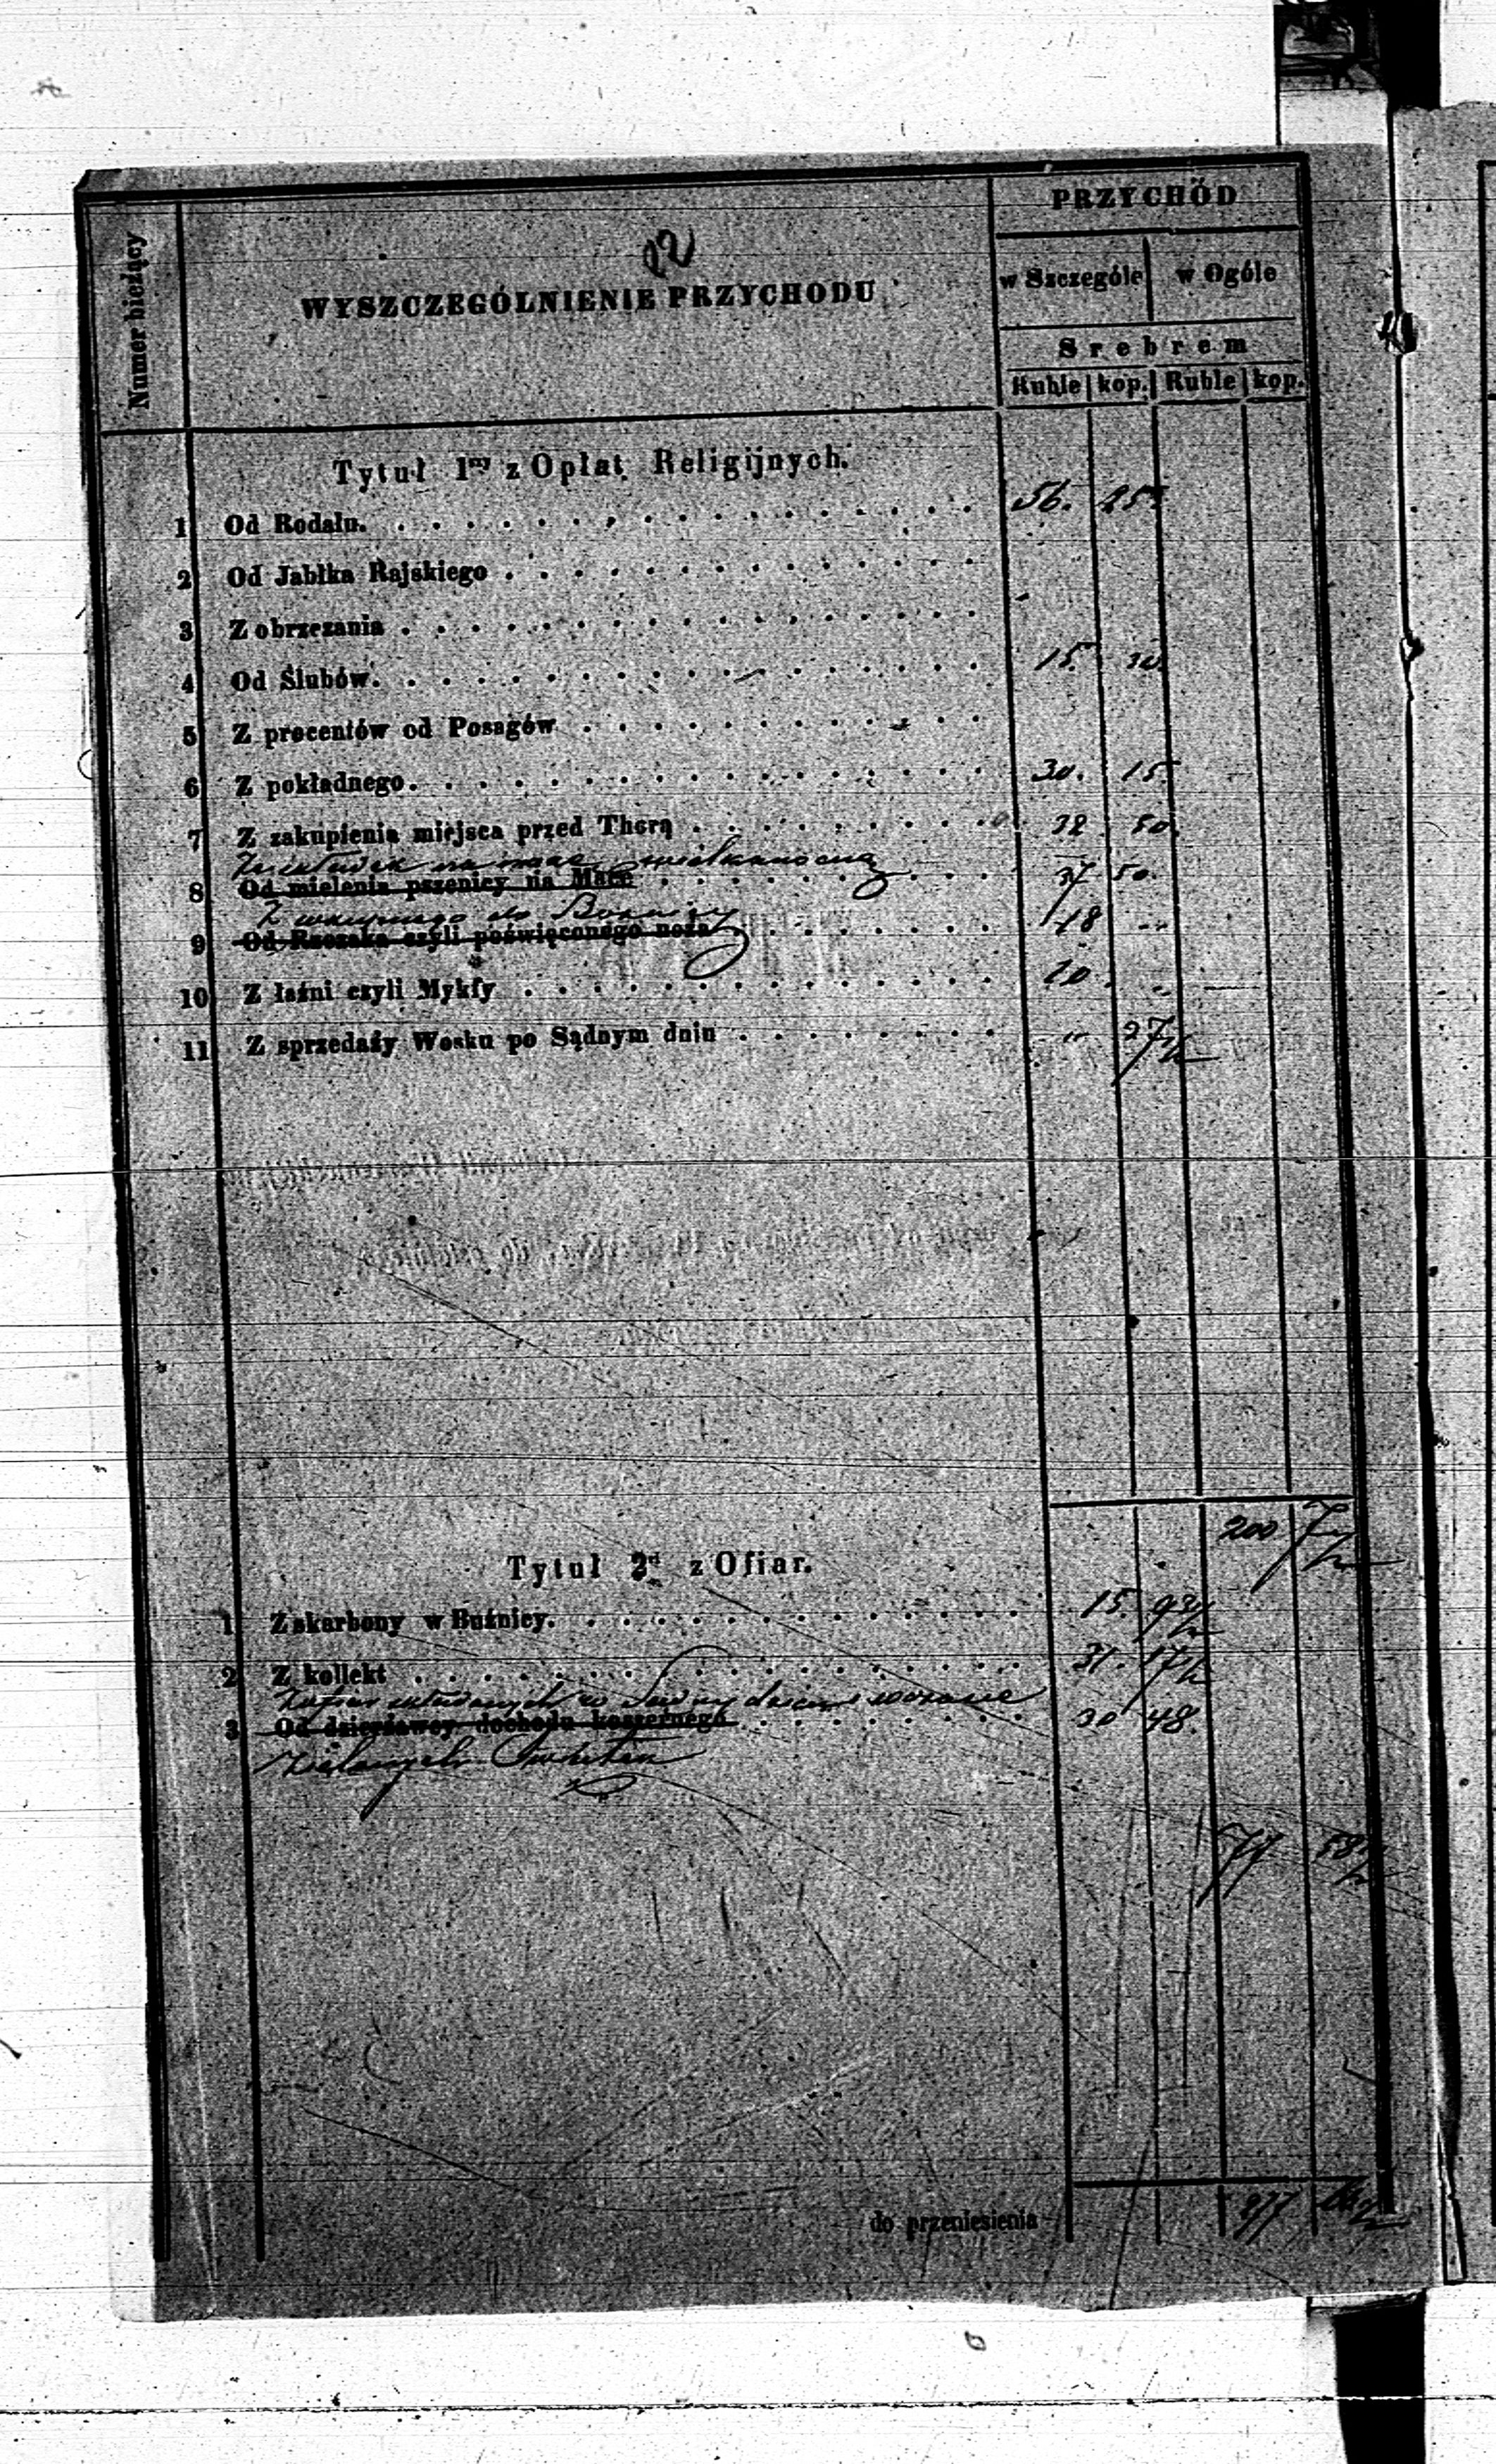 12
Numer bieżący
WYSZCZEGÓLNIENIE PRZYCHODU
PRZYCHÓD
w Szczególe w Ogóle
Srebrem
Ruble kop. Ruble kop.
Tytuł 1ny z Opłat Religijnych.
1 Od Rodału. 56. 25.
2 Od Jabłka Rajskiego
3 Z obrzezania
4 Od Ślubów. 15.
5 Z procentów od Posagów
6 Z pokładnego. 30. 15.
7 Z zakupienia miejsca przed Thorą 32 50.
Ze składek na mace wielkanocną
8 Od mielenia pszenicy na Mace 50.
Z wkupnego do Bożnicy
9 Od Rzezaka czyli poświęconego noża 18 --
10 Z łaźni czyli Mykfy 20. --
11 Z sprzedaży Wosku po Sądnym dniu " 27 1/2
200 7 1/2
Tytuł 2d z Ofiar.
1 Z skarbony w Buźnicy. 15. 93 1/2
2 Z kollekt 31. 17 1/2
Z ofiar w Sądny dzień i w czasie
3 Od dzierżawcy dochodu koszernego 30 48.
Świątek
77 58 1/2
do przeniesienia 277